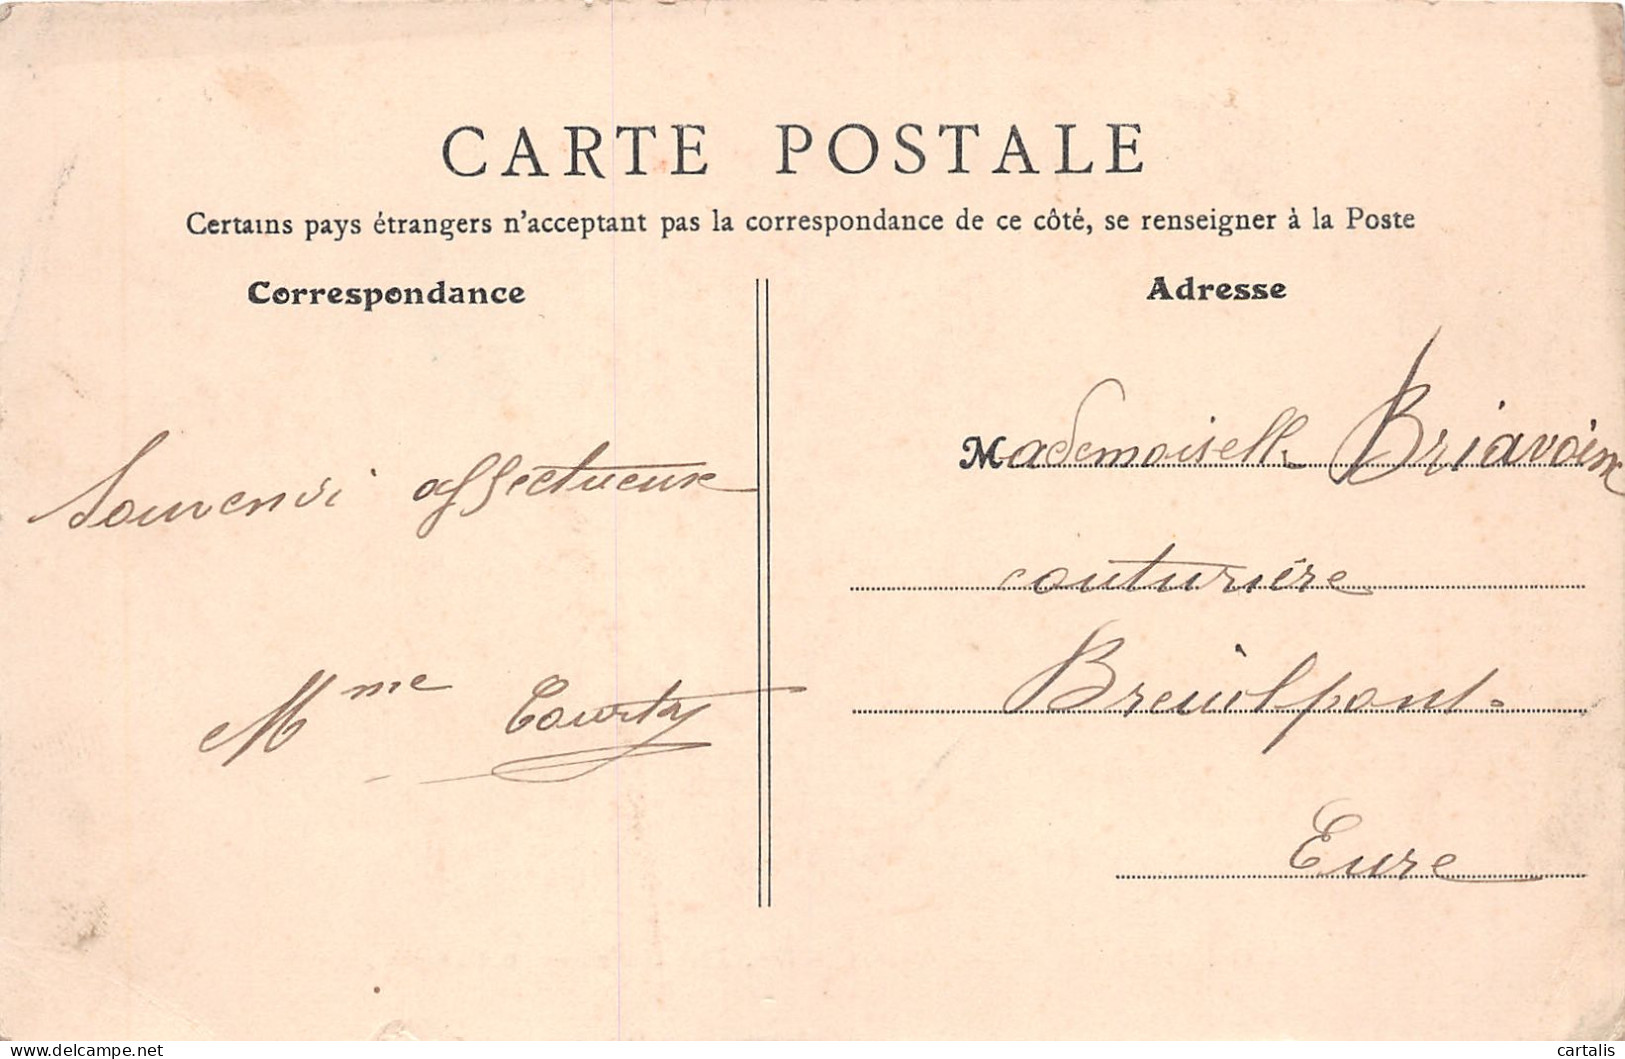 CARTE POSTALE
Certains pays étrangers n'acceptant pas la correspondance de ce côté, se renseigner à la Poste
Correspondance
Adresse
Souvenir affectueux
Mme Courty
Mademoiselle Briavoine
couturière
Breuilpont.
Eure
www.delcampe.net
cartalis